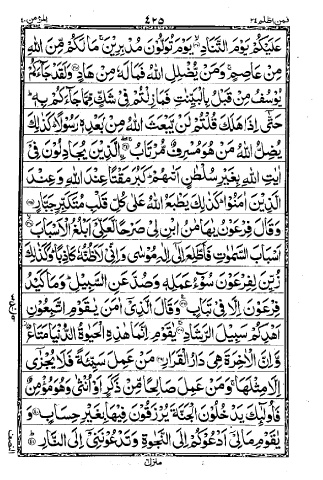 المؤمن ٤٠ ٤٢٥ فمن اظلم ٢٤
عَلَيْكُمْ يَوْمَ التَّنَادِ يَوْمَ تُوَلُّوْنَ مُدْبِرِيْنَ مَا لَكُمْ مِّنَ اللّٰهِ
مِنْ عَاصِمٍ وَمَنْ يُّضْلِلِ اللّٰهُ فَمَا لَهٗ مِنْ هَادٍ وَلَقَدْ جَآءَكُمْ
يُوْسُفُ مِنْ قَبْلُ بِالْبَيِّنٰتِ فَمَا زِلْتُمْ فِيْ شَكٍّ مِّمَّا جَآءَكُمْ بِهٖ
حَتّٰٓى اِذَا هَلَكَ قُلْتُمْ لَنْ يَّبْعَثَ اللّٰهُ مِنْۢ بَعْدِهٖ رَسُوْلًا كَذٰلِكَ
يُضِلُّ اللّٰهُ مَنْ هُوَ مُسْرِفٌ مُّرْتَابٌ الَّذِيْنَ يُجَادِلُوْنَ فِيْٓ
اٰيٰتِ اللّٰهِ بِغَيْرِ سُلْطٰنٍ اَتٰىهُمْ كَبُرَ مَقْتًا عِنْدَ اللّٰهِ وَعِنْدَ
الَّذِيْنَ اٰمَنُوْا كَذٰلِكَ يَطْبَعُ اللّٰهُ عَلٰى كُلِّ قَلْبِ مُتَكَبِّرٍ جَبَّارٍ
وَقَالَ فِرْعَوْنُ يٰهَامٰنُ ابْنِ لِيْ صَرْحًا لَّعَلِّيْٓ اَبْلُغُ الْاَسْبَابَ
اَسْبَابَ السَّمٰوٰتِ فَاَطَّلِعَ اِلٰٓى اِلٰهِ مُوْسٰى وَاِنِّيْ لَاَظُنُّهٗ كَاذِبًا وَكَذٰلِكَ
زُيِّنَ لِفِرْعَوْنَ سُوْٓءُ عَمَلِهٖ وَصُدَّ عَنِ السَّبِيْلِ وَمَا كَيْدُ
فِرْعَوْنَ اِلَّا فِيْ تَبَابٍ وَقَالَ الَّذِيْٓ اٰمَنَ يٰقَوْمِ اتَّبِعُوْنِ
اَهْدِكُمْ سَبِيْلَ الرَّشَادِ يٰقَوْمِ اِنَّمَا هٰذِهِ الْحَيٰوةُ الدُّنْيَا مَتَاعٌ
وَّاِنَّ الْاٰخِرَةَ هِيَ دَارُ الْقَرَارِ مَنْ عَمِلَ سَيِّئَةً فَلَا يُجْزٰٓى
اِلَّا مِثْلَهَا وَمَنْ عَمِلَ صَالِحًا مِّنْ ذَكَرٍ اَوْ اُنْثٰى وَهُوَ مُؤْمِنٌ
فَاُولٰٓئِكَ يَدْخُلُوْنَ الْجَنَّةَ يُرْزَقُوْنَ فِيْهَا بِغَيْرِ حِسَابٍ وَ
يٰقَوْمِ مَا لِيْٓ اَدْعُوْكُمْ اِلَى النَّجٰوةِ وَتَدْعُوْنَنِيْٓ اِلَى النَّارِ
منزل